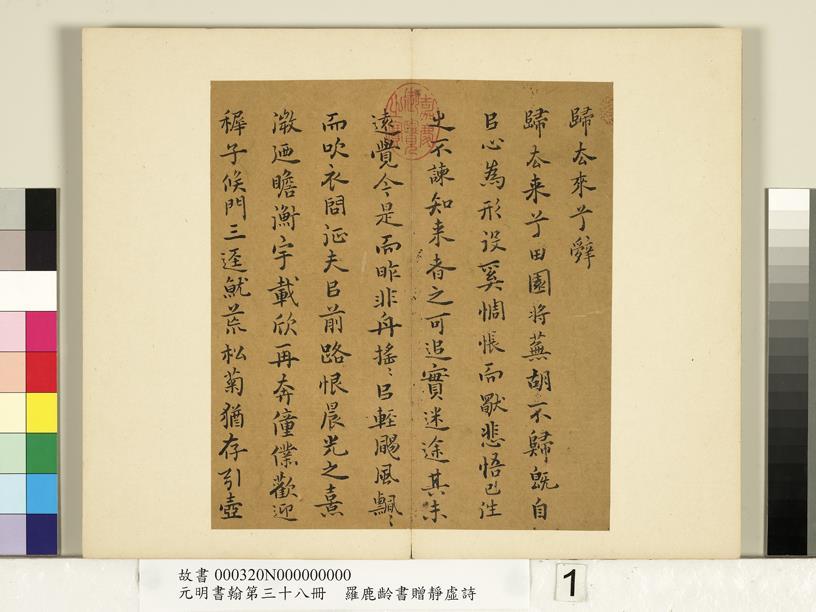 歸去來兮辭
歸去来兮田園將蕪胡不歸既自
㠯心為形役奚惆悵而獨悲悟已往
之不諫知来者之可追實迷途其未
遠覺今是而昨非舟搖〻㠯輕颺風飄〻
而吹衣問征夫㠯前路恨晨光之熹
微廼瞻衡宇載欣再奔僮僕歡迎
穉子候門三逕就荒松菊猶存引壺
故書 000320N000000000
元明書翰第三十八冊 羅鹿齡書贈靜虛詩
1